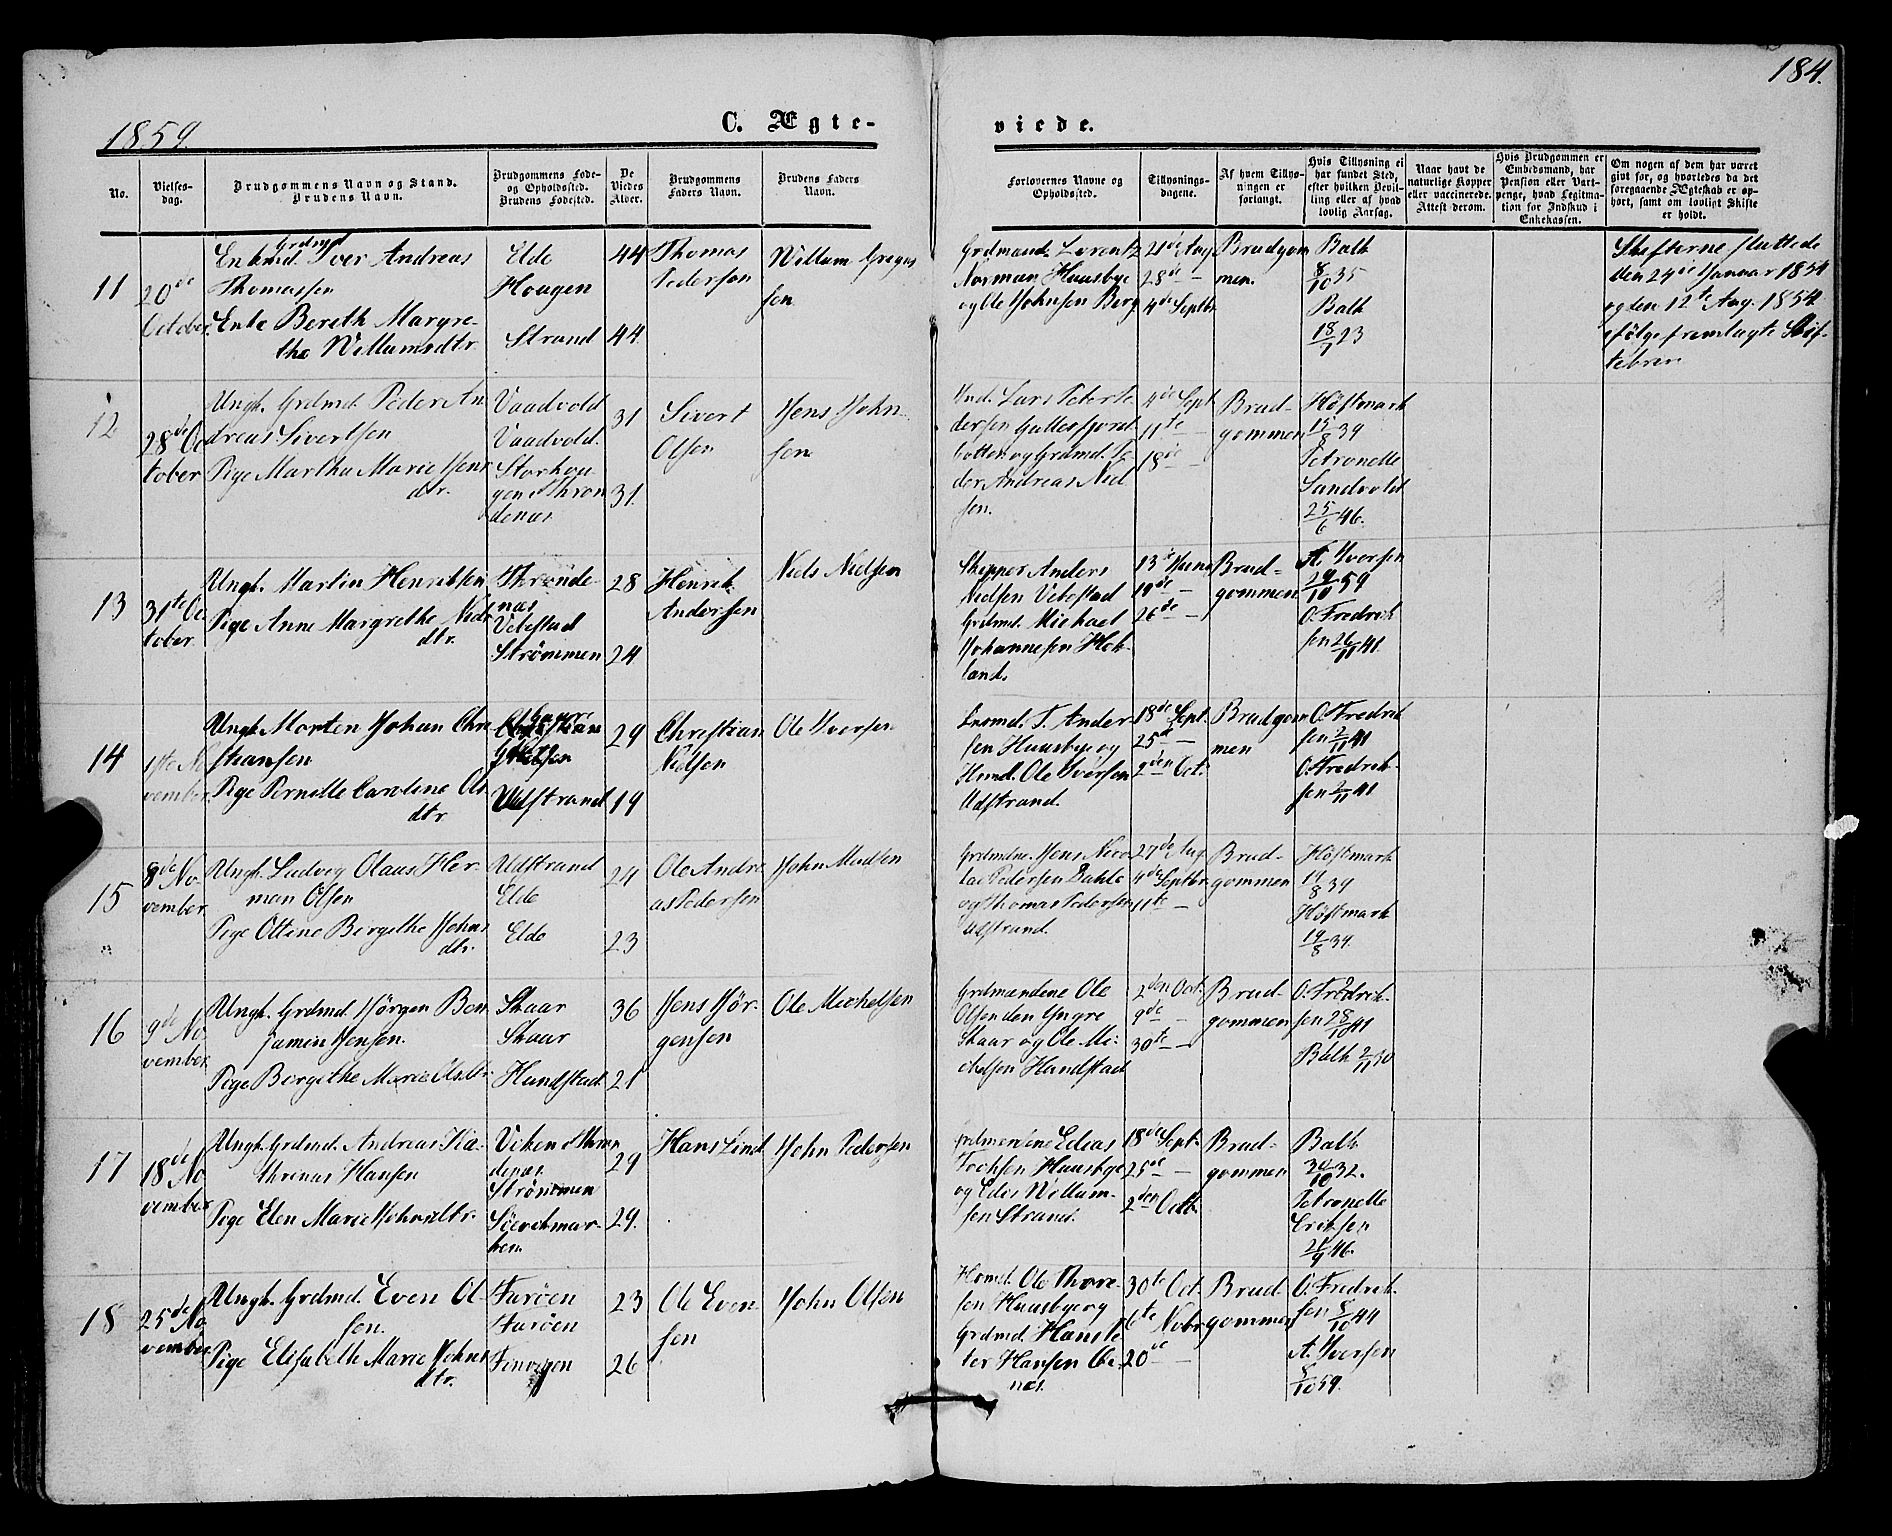 184.
1859.
C. Ægteviede.
No.
Vielsesdag.
Brudgommens Navn og Stand.
Brudens Navn.
Brudgommens Føde- og Opholdssted.
Brudens Fødested.
De Viedes Alder.
Brudgommens Faders Navn.
Brudens Faders Navn.
Forlovernes Navne og Opholdssted.
Tillysningsdagene.
Af hvem Tillysningen er forlangt.
Hvis Tillysning ei har fundet Sted, efter hvilken Bevilling eller af hvad lovlig Aarsag.
Naar havt de naturlige Kopper eller vaccinerede. Attest derom.
Hvis Brudgommen er Embedsmand, har Pension eller Vartpenge, hvad Legitimation for Indskud i Enkekassen.
Om nogen af dem har været givt for, og hvorledes da det foregaaende Ægteskab er ophørt, samt om lovligt Skifte er holdt.
11
20de October
Enkmd. Grdmd. Iver Andreas
Thomassen
Enke Bereth Margre-
the Willumsdtr.
Elde
Hougen
Strand
44
44
Thomas
Pedersen
Willum Gregus
sen
Grdmænd. Lorentz
Norman Huusbye
og Ole Johnsen Berg
21de Aug
28de —
4de Septbr.
Brudgom
men.
Balk
8/10 35
Balk
18/7 23
Skifterne sluttede
den 24de Januar 1854
og den 12te Aug. 1854
ifølge fremlagte Skif-
tebrev
12
28de Oc
tober
Ungk. Grdmd. Peder An
dreas Sivertsen
Pige Martha Marie Jens
dtr.
Vaadvold
Vaadvold.
Storhou
gen i Thron
denæs
31
31.
Sivert
Olsen
Jens John
sen
Lars Peter Pe
dersen Gullesfjord
botten og Grdmd. Pe
der Andreas Niel
sen.
4de Sept
11te —
18de —
Brud-
gommen
Høstmark
15/8 39
Petronelle
Sandvold
25/6 46.
13
31te Oc
tober
Ungk. Martin Henriksen
Pige Anne Margrethe Niels
dtr.
Thronde-
næs
Vebestad
Strømmen
28
24
Henrik
Andersen
Niels Nielsen
Skipper Anders
Nielsen Vebestad
Grdmd. Michael
Johannesen Hok-
land.
13de Juni
19de —
26de —
Brud-
gommen
A. Iversen
29/10 59
O. Fredrik
sen 26/11 41.
14
1ste No
vember
Ungk. Morten Johan Chri
stiansen
Pige Pernille Caroline Ols
dtr.
Udstrand
29
19
Christian
Nielsen
Ole Iversen
sen Huusbye og
Hmd. Ole Iversen
Udstrand.
18de Sept.
25de —
2den Oct.
Brudgom
men
O. Fredrik
sen 2/11 41
O. Fredrik-
sen 2/11 41
15
8de No-
vember
Ungk. Ludvig Olaus Her-
man Olsen
Pige Ottine Bergithe Johns
dtr.
Udstrand
Elde
Elde
24
23
Ole Andre
as Pedersen
John Madsen
Grdmdne. Jens Nico
lai Pedersen Dahle
og Thomas Pedersen
Udstrand.
27de Aug.
4de Septbr.
11te —
Brud-
gommen
Høstmark
19/8 39
Høstmark
19/8 39.
16
9de No-
vember
Ungk. Grdmd. Jørgen Ben
jamin Jensen.
Pige Bergithe Marie Olsdtr.
Skaar
Skaar
Hundstad
36
21
Jens Jør-
gensen
Ole Michelsen
Grdmændene Ole
Olsen den Yngre
Skaar og Ole Mi-
chelsen Hundstad
2den Oct.
9de —
30te —
Brud-
gommen
O. Fredrik-
sen 28/10 41
Balk 2/11 30
17
18de No
vember
Ungk. Grdmd. Andreas Ka-
thrinus Hansen
Pige Elen Marie Johnsdtr.
Viken i Thron
denæs.
Strømmen
29
29.
Hans Lind
John Pedersen
Grdmændene Edias
Tochsen Huusbye
og Edis Willum-
sen Strand.
18de Sept.
25de —
2den Octb.
Brud-
gommen
Balk
30/10 32.
Petronelle
Eriksen
21/9 46.
18
25de No
vember
Ungk. Grdmd. Even Ol-
sen.
Pige Elisabeth Marie Johns
dtr.
Furöen
Furöen
23
26
Ole Even-
sen
John Olsen
Hmd. Ole Thore-
sen Huusby og
Grdmd. Hans Pe
ter Hansen
30te Oct.
6te Novbr
20de —
Brud
gommen
O. Fredrik-
sen 8/10 44
A. Iversen
8/10 59.